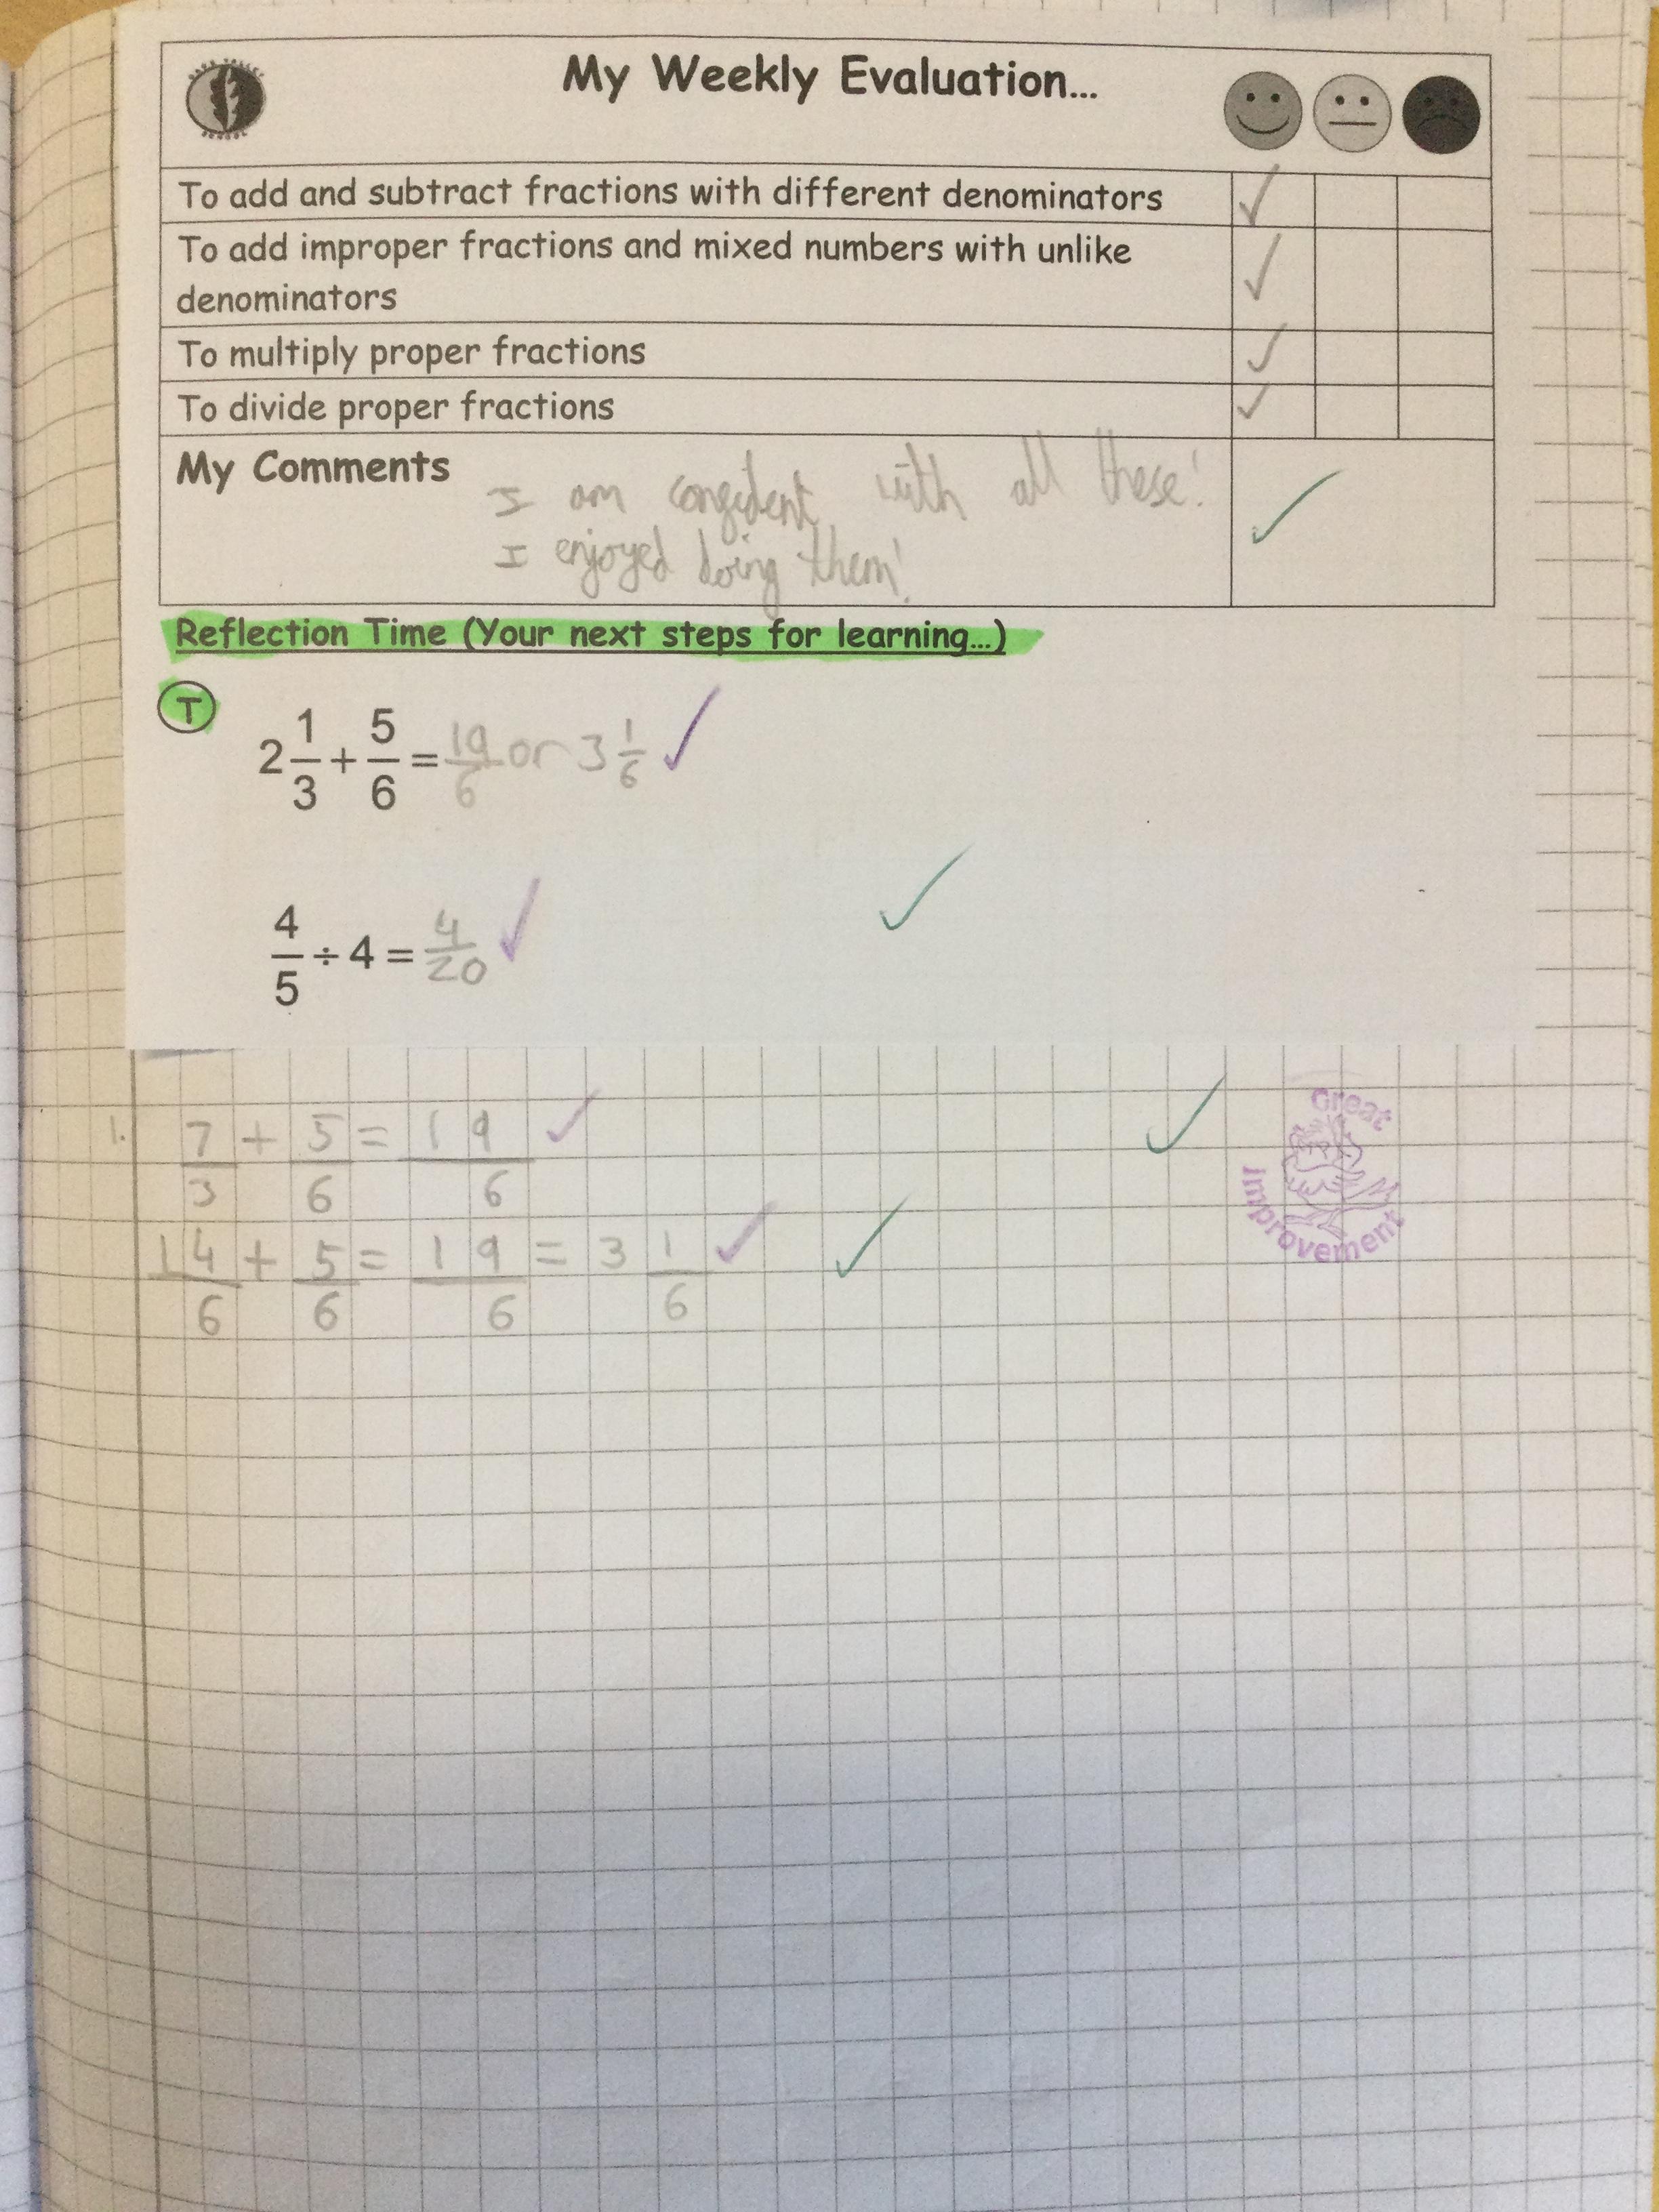 My Weekly Evaluation...
To add and subtract fractions with different denominators ✓
To add improper fractions and mixed numbers with unlike
denominators ✓
To multiply proper fractions ✓
To divide proper fractions ✓
My Comments I am confident with all these! ✓
I enjoyed doing them!
Reflection Time (Your next steps for learning...)
T
2 1/3 + 5/6 = 19/6 or 3 1/6 ✓
4/5 ÷ 4 = 4/20 ✓ ✓
1. 7/3 + 5/6 = 19/6 ✓ ✓
14/6 + 5/6 = 19/6 = 3 1/6 ✓ ✓
Great
Improvement